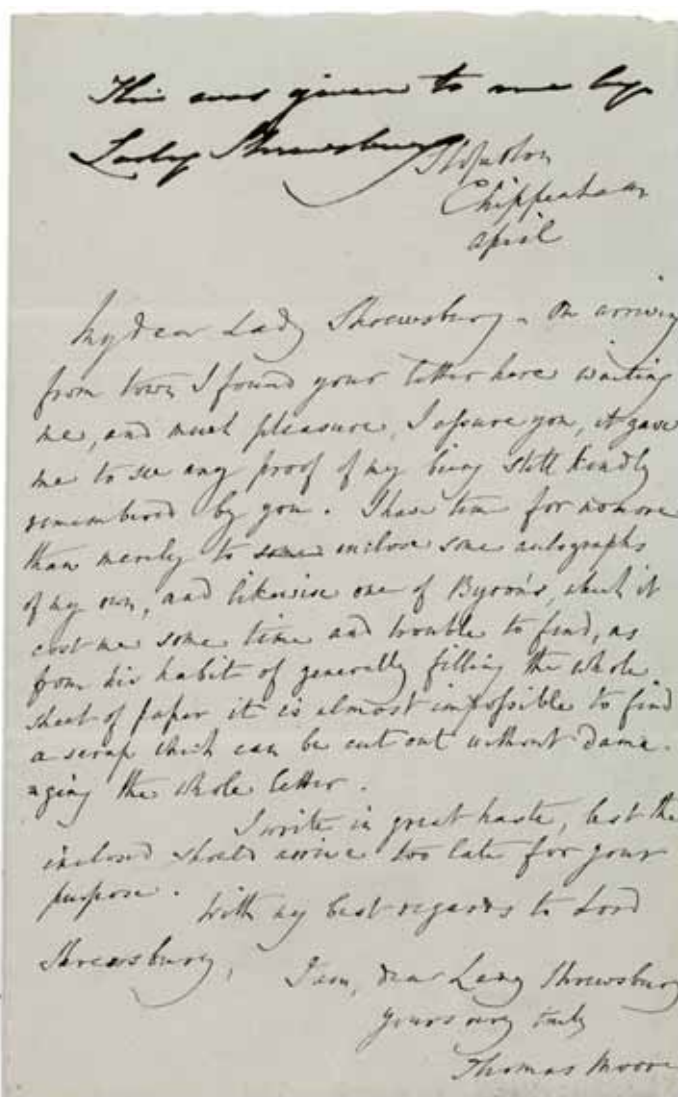 This was given to me by
Lady Shrewsbury
Sloperton
Chippenham
April
My dear Lady Shrewsbury - On arriving
from town I found your letter here waiting
me, and much pleasure, I assure you, it gave
me to see any proof of my being still kindly
remembered by you. I have time for no more
than merely to some inclose some autographs
of my own, and likewise one of Byron's, which it
cost me some time and trouble to find, as
from his habit of generally filling the whole
sheet of paper it is almost impossible to find
a scrap which can be cut out without dama-
-ging the whole letter.
I write in great haste, lest the
inclosed should arrive too late for your
purpose.
With my best regards to Lord
Shrewsbury,
I am, dear Lady Shrewsbury
yours very truly
Thomas Moore